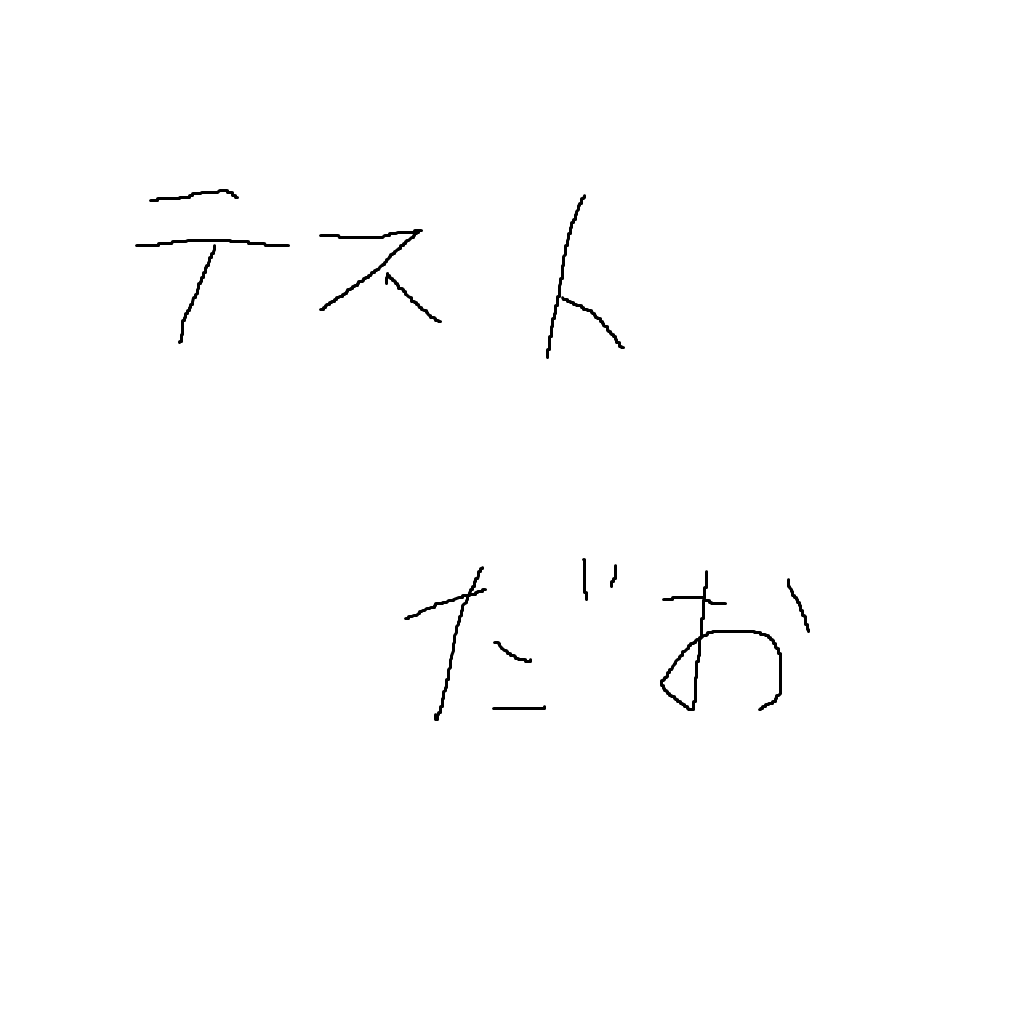 テスト
だお